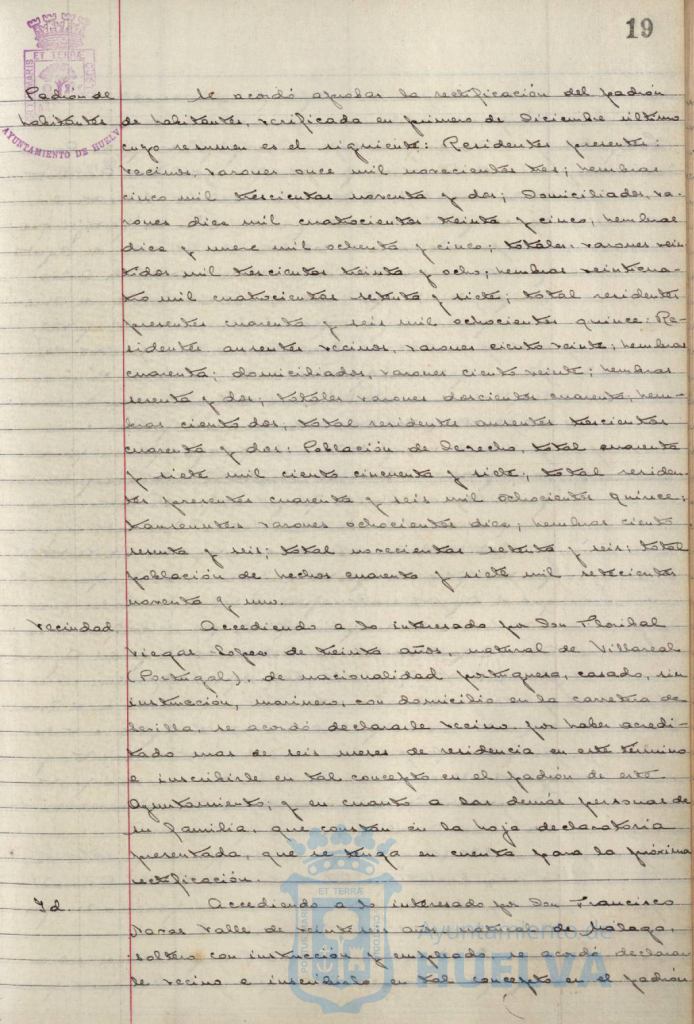 19
Padrón de
habitantes
ET TERRÆ
AYUNTAMIENTO DE HUELVA
Se acordó aprobar la rectificación del padrón
de habitantes, verificada en primero de Diciembre último
cuyo resumen es el siguiente: Residentes presentes:
vecinos, varones once mil novecientos tres; hembras
cinco mil trescientas noventa y dos; Domiciliados, va-
rones diez mil cuatrocientos treinta y cinco, hembras
diez y nueve mil ochenta y cinco; totales, varones vein-
tidos mil trescientos treinta y ocho, hembras veinticua-
tro mil cuatrocientas setenta y siete; total residentes
presentes cuarenta y seis mil ochocientos quince: Re-
sidentes ausentes vecinos, varones ciento veinte; hembras
cuarenta; domiciliados, varones ciento veinte; hembras
sesenta y dos; totales varones doscientos cuarenta, hem-
bras ciento dos; total residentes ausentes trescientos
cuarenta y dos: Población de Derecho, total cuarenta
y siete mil ciento cincuenta y siete; total residen-
tes presentes cuarenta y seis mil ochocientos quince;
transeuntes varones ochocientos diez; hembras ciento
sesenta y seis; total novecientos setenta y seis; total
población de hechos cuarenta y siete mil setecientos
noventa y uno.
Vecindad.
Accediendo a lo interesado por Don Floribal
Viegas Lopez de treinta años, natural de Villareal
(Portugal), de nacionalidad portuguesa, casado, sin
instrucción, marinero, con domicilio en la carretera de
Sevilla, se acordó declararle vecino por haber acredi-
tado mas de seis meses de residencia en este término
e inscribirle en tal concepto en el padrón de este
Ayuntamiento; y en cuanto a las demás personas de
su familia, que constan en la hoja declaratoria
presentada, que se tenga en cuenta para la próxima
rectificación.
Id.
Accediendo a lo interesado por Don Francisco
Valle de veintiseis años, natural de Málaga,
soltero con instrucción y empleado, se acordó declarar
le vecino e inscribirlo en tal concepto en el padrón
ET TERRÆ
Ayuntamiento de
HUELVA